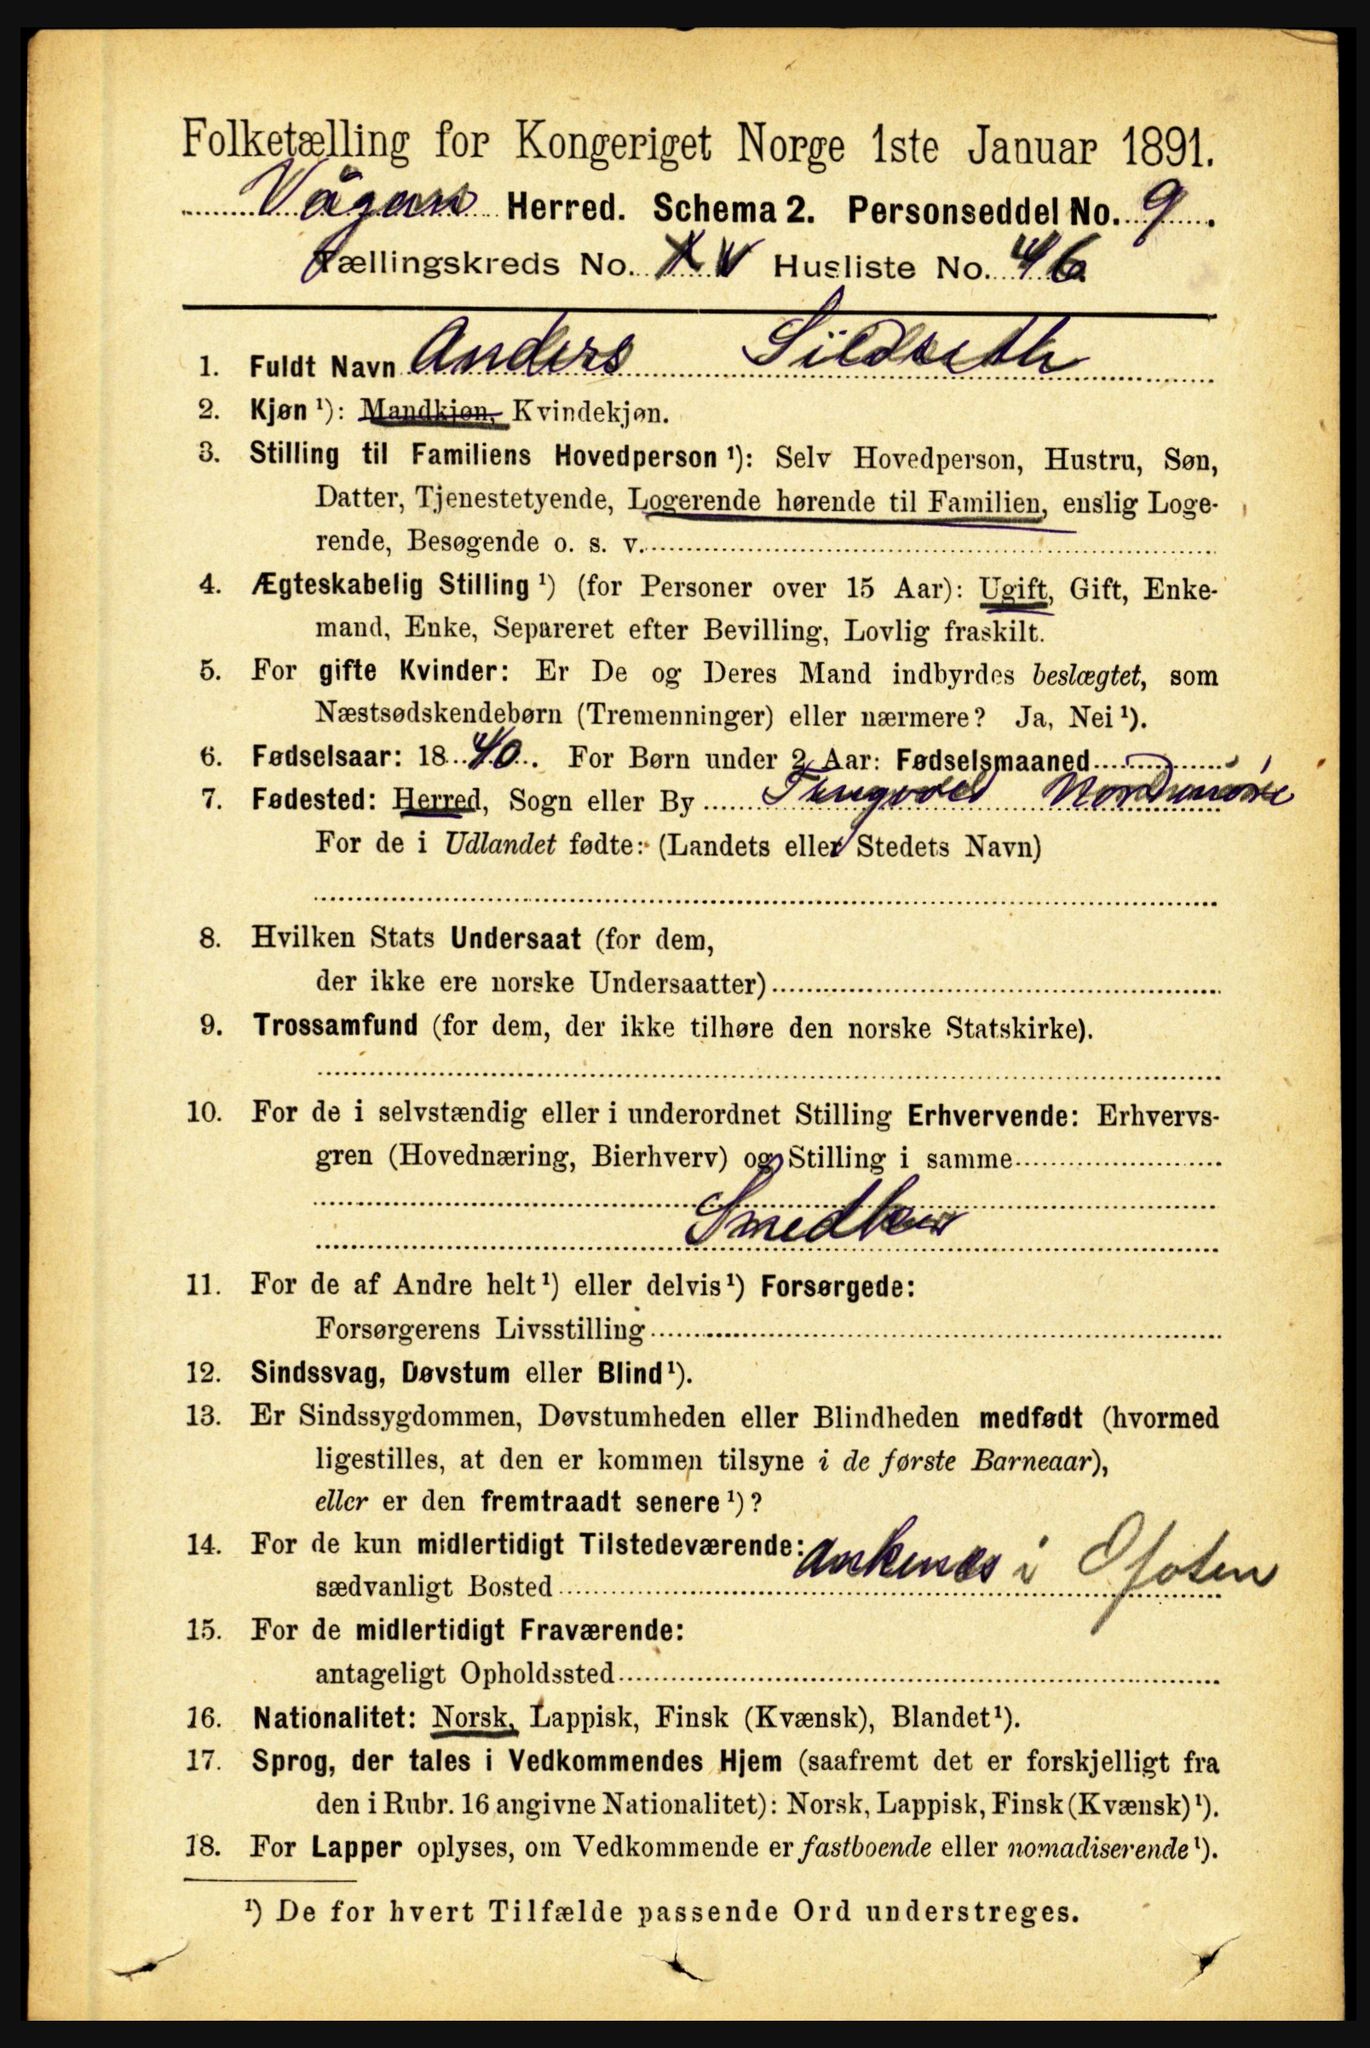 Folketælling for Kongeriget Norge 1ste Januar 1891.
Vågan Herred. Schema 2. Personseddel No. 9.
Tællingskreds No. XV Husliste No. 46
1. Fuldt Navn Anders Sildseth
2. Kjøn ¹): Mandkjøn, Kvindekjøn.
3. Stilling til Familiens Hovedperson ¹): Selv Hovedperson, Hustru, Søn,
Datter, Tjenestetyende, Logerende hørende til Familien, enslig Loge-
rende, Besøgende o. s. v.
4. Ægteskabelig Stilling ¹) (for Personer over 15 Aar): Ugift, Gift, Enke-
mand, Enke, Separeret efter Bevilling, Lovlig fraskilt.
5. For gifte Kvinder: Er De og Deres Mand indbyrdes beslægtet, som
Næstsødskendebørn (Tremenninger) eller nærmere? Ja, Nei ¹).
6. Fødselsaar: 1840. For Børn under 2 Aar: Fødselsmaaned
7. Fødested: Herred, Sogn eller By Tingvold Nordmøre
For de i Udlandet fødte: (Landets eller Stedets Navn)
8. Hvilken Stats Undersaat (for dem,
der ikke ere norske Undersaatter)
9. Trossamfund (for dem, der ikke tilhøre den norske Statskirke).
10. For de i selvstændig eller i underordnet Stilling Erhvervende: Erhvervs-
gren (Hovednæring, Bierhverv) og Stilling i samme
11. For de af Andre helt ¹) eller delvis ¹) Forsørgede:
Forsørgerens Livsstilling
12. Sindssvag, Døvstum eller Blind ¹).
13. Er Sindssygdommen, Døvstumheden eller Blindheden medfødt (hvormed
ligestilles, at den er kommen tilsyne i de første Barneaar),
eller er den fremtraadt senere ¹)?
14. For de kun midlertidigt Tilstedeværende:
sædvanligt Bosted Ankenæs i Ofoten
15. For de midlertidigt Fraværende:
antageligt Opholdssted
16. Nationalitet: Norsk, Lappisk, Finsk (Kvænsk), Blandet ¹).
17. Sprog, der tales i Vedkommendes Hjem (saafremt det er forskjelligt fra
den i Rubr. 16 angivne Nationalitet): Norsk, Lappisk, Finsk (Kvænsk) ¹).
18. For Lapper oplyses, om Vedkommende er fastboende eller nomadiserende ¹).
¹) De for hvert Tilfælde passende Ord understreges.